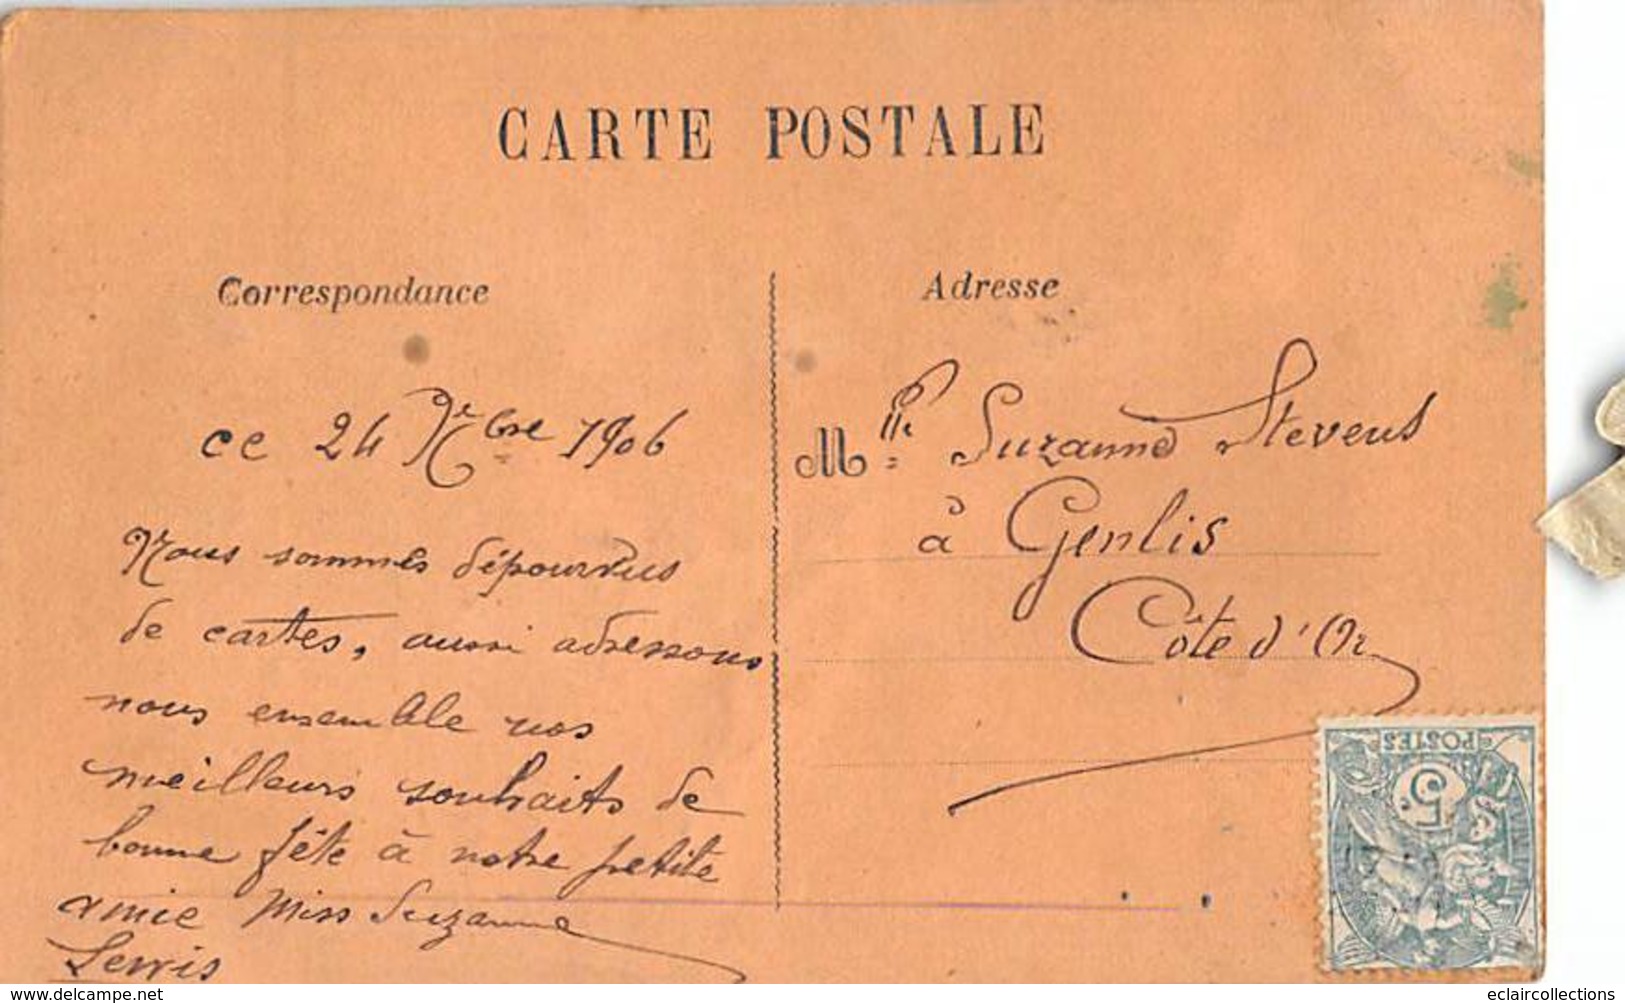 CARTE POSTALE
Correspondance
Adresse
ce 24 9bre 1906
Nous sommes dépourvus
de cartes, aussi adressons
nous ensemble nos
meilleurs souhaits de
bonne fête à notre petite
amie Miss Suzanne
Mlle Suzanne Stevens
à Genlis
Côte d'Or
POSTES
5
eclaircollections
www.delcampe.net
eclaircollections